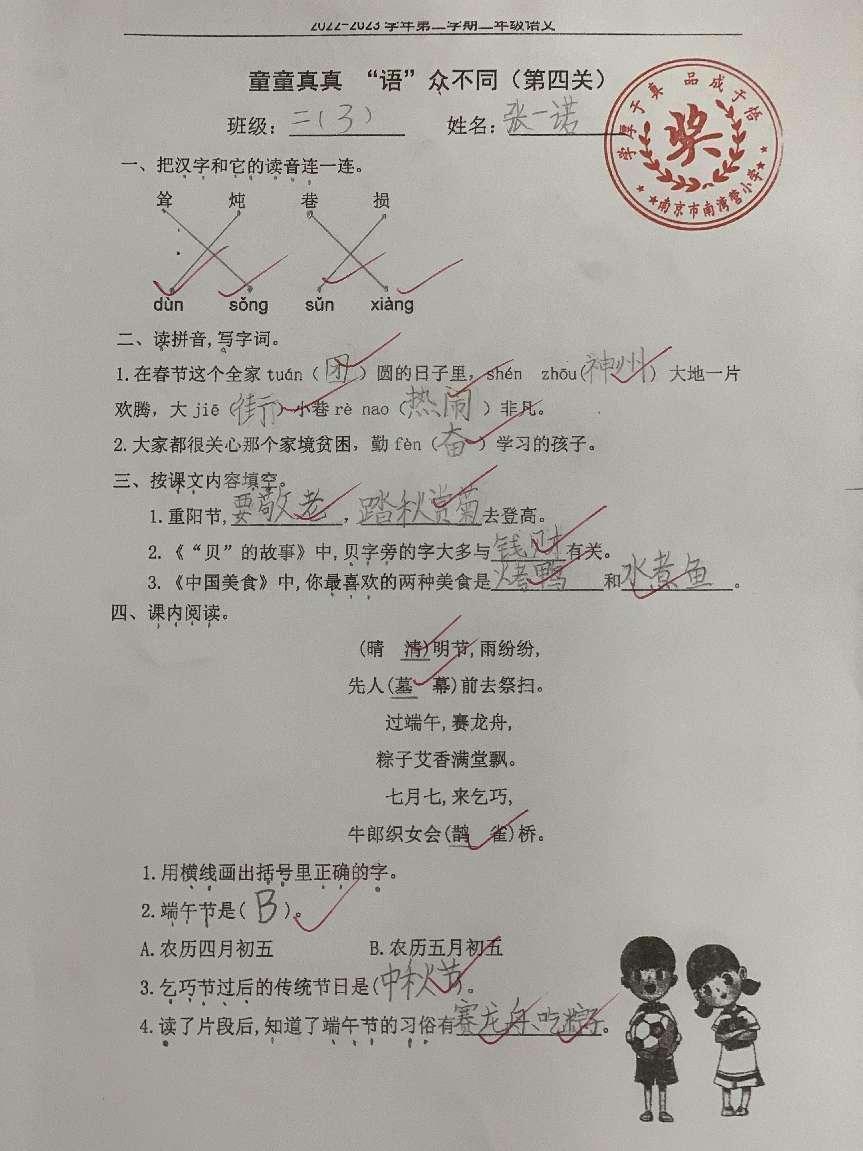 2022-2023 学年第二学期二年级语文
童童真真 “语”众不同（第四关）
班级：二(3) 姓名：张一诺
学厚子真 品成于悟
奖
南京市南湾营小学
一、把汉字和它的读音连一连。
耸 炖 巷 损
dùn sǒng sǔn xiàng
二、读拼音,写字词。
1.在春节这个全家 tuán（团）圆的日子里，shén zhōu（神州）大地一片
欢腾，大 jiē（街）小巷 rè nao（热闹）非凡。
2.大家都很关心那个家境贫困，勤 fèn（奋）学习的孩子。
三、按课文内容填空。
1.重阳节,要敬老，踏秋赏菊去登高。
2.《“贝”的故事》中,贝字旁的字大多与钱财有关。
3.《中国美食》中,你最喜欢的两种美食是烤鸭和水煮鱼。
四、课内阅读。
(晴 清)明节,雨纷纷,
先人(墓 幕)前去祭扫。
过端午,赛龙舟,
粽子艾香满堂飘。
七月七,来乞巧,
牛郎织女会(鹊 雀)桥。
1.用横线画出括号里正确的字。
2.端午节是( B )。
A.农历四月初五 B.农历五月初五
3.乞巧节过后的传统节日是(中秋节)。
4.读了片段后,知道了端午节的习俗有赛龙舟、吃粽子。